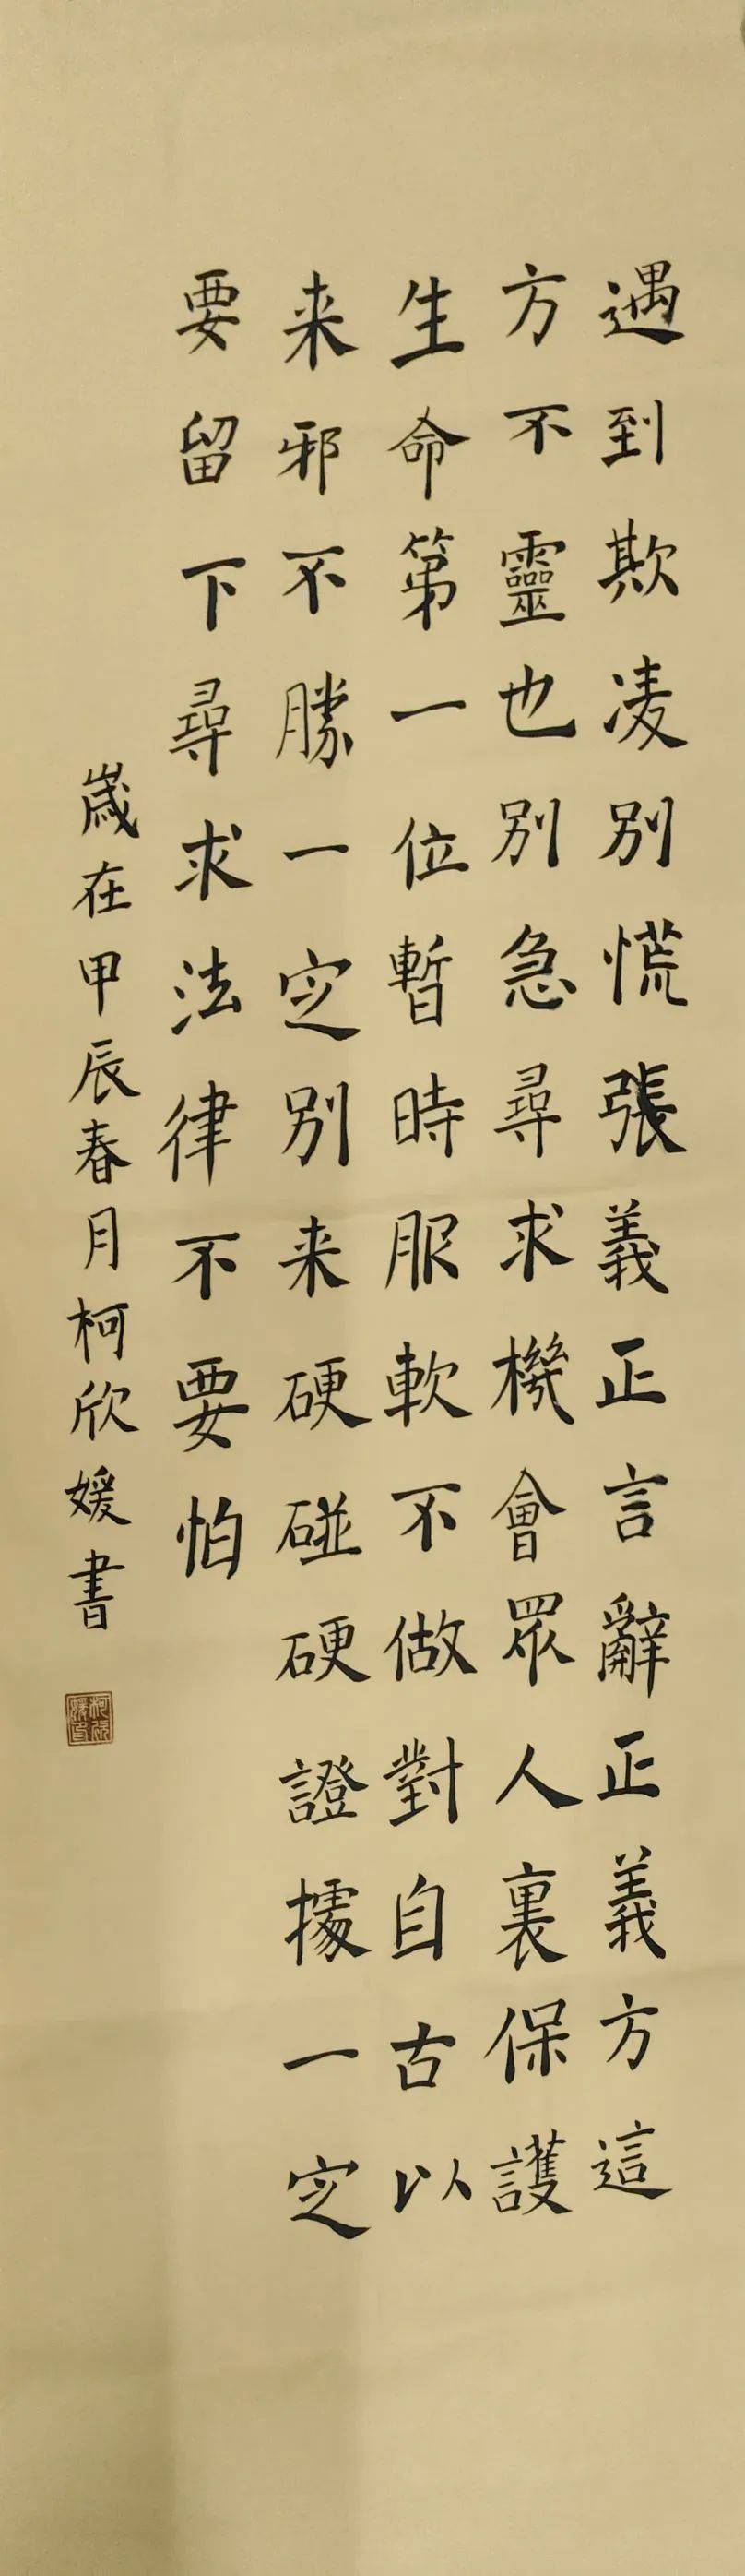 遇到欺凌别慌張義正言辭正義方這
方不靈也别急尋求機會眾人裏保護
生命第一位暫時服軟不做對自古以
来邪不勝一定别来硬碰硬證據一定
要留下尋求法律不要怕
歲在甲辰春月柯欣媛書